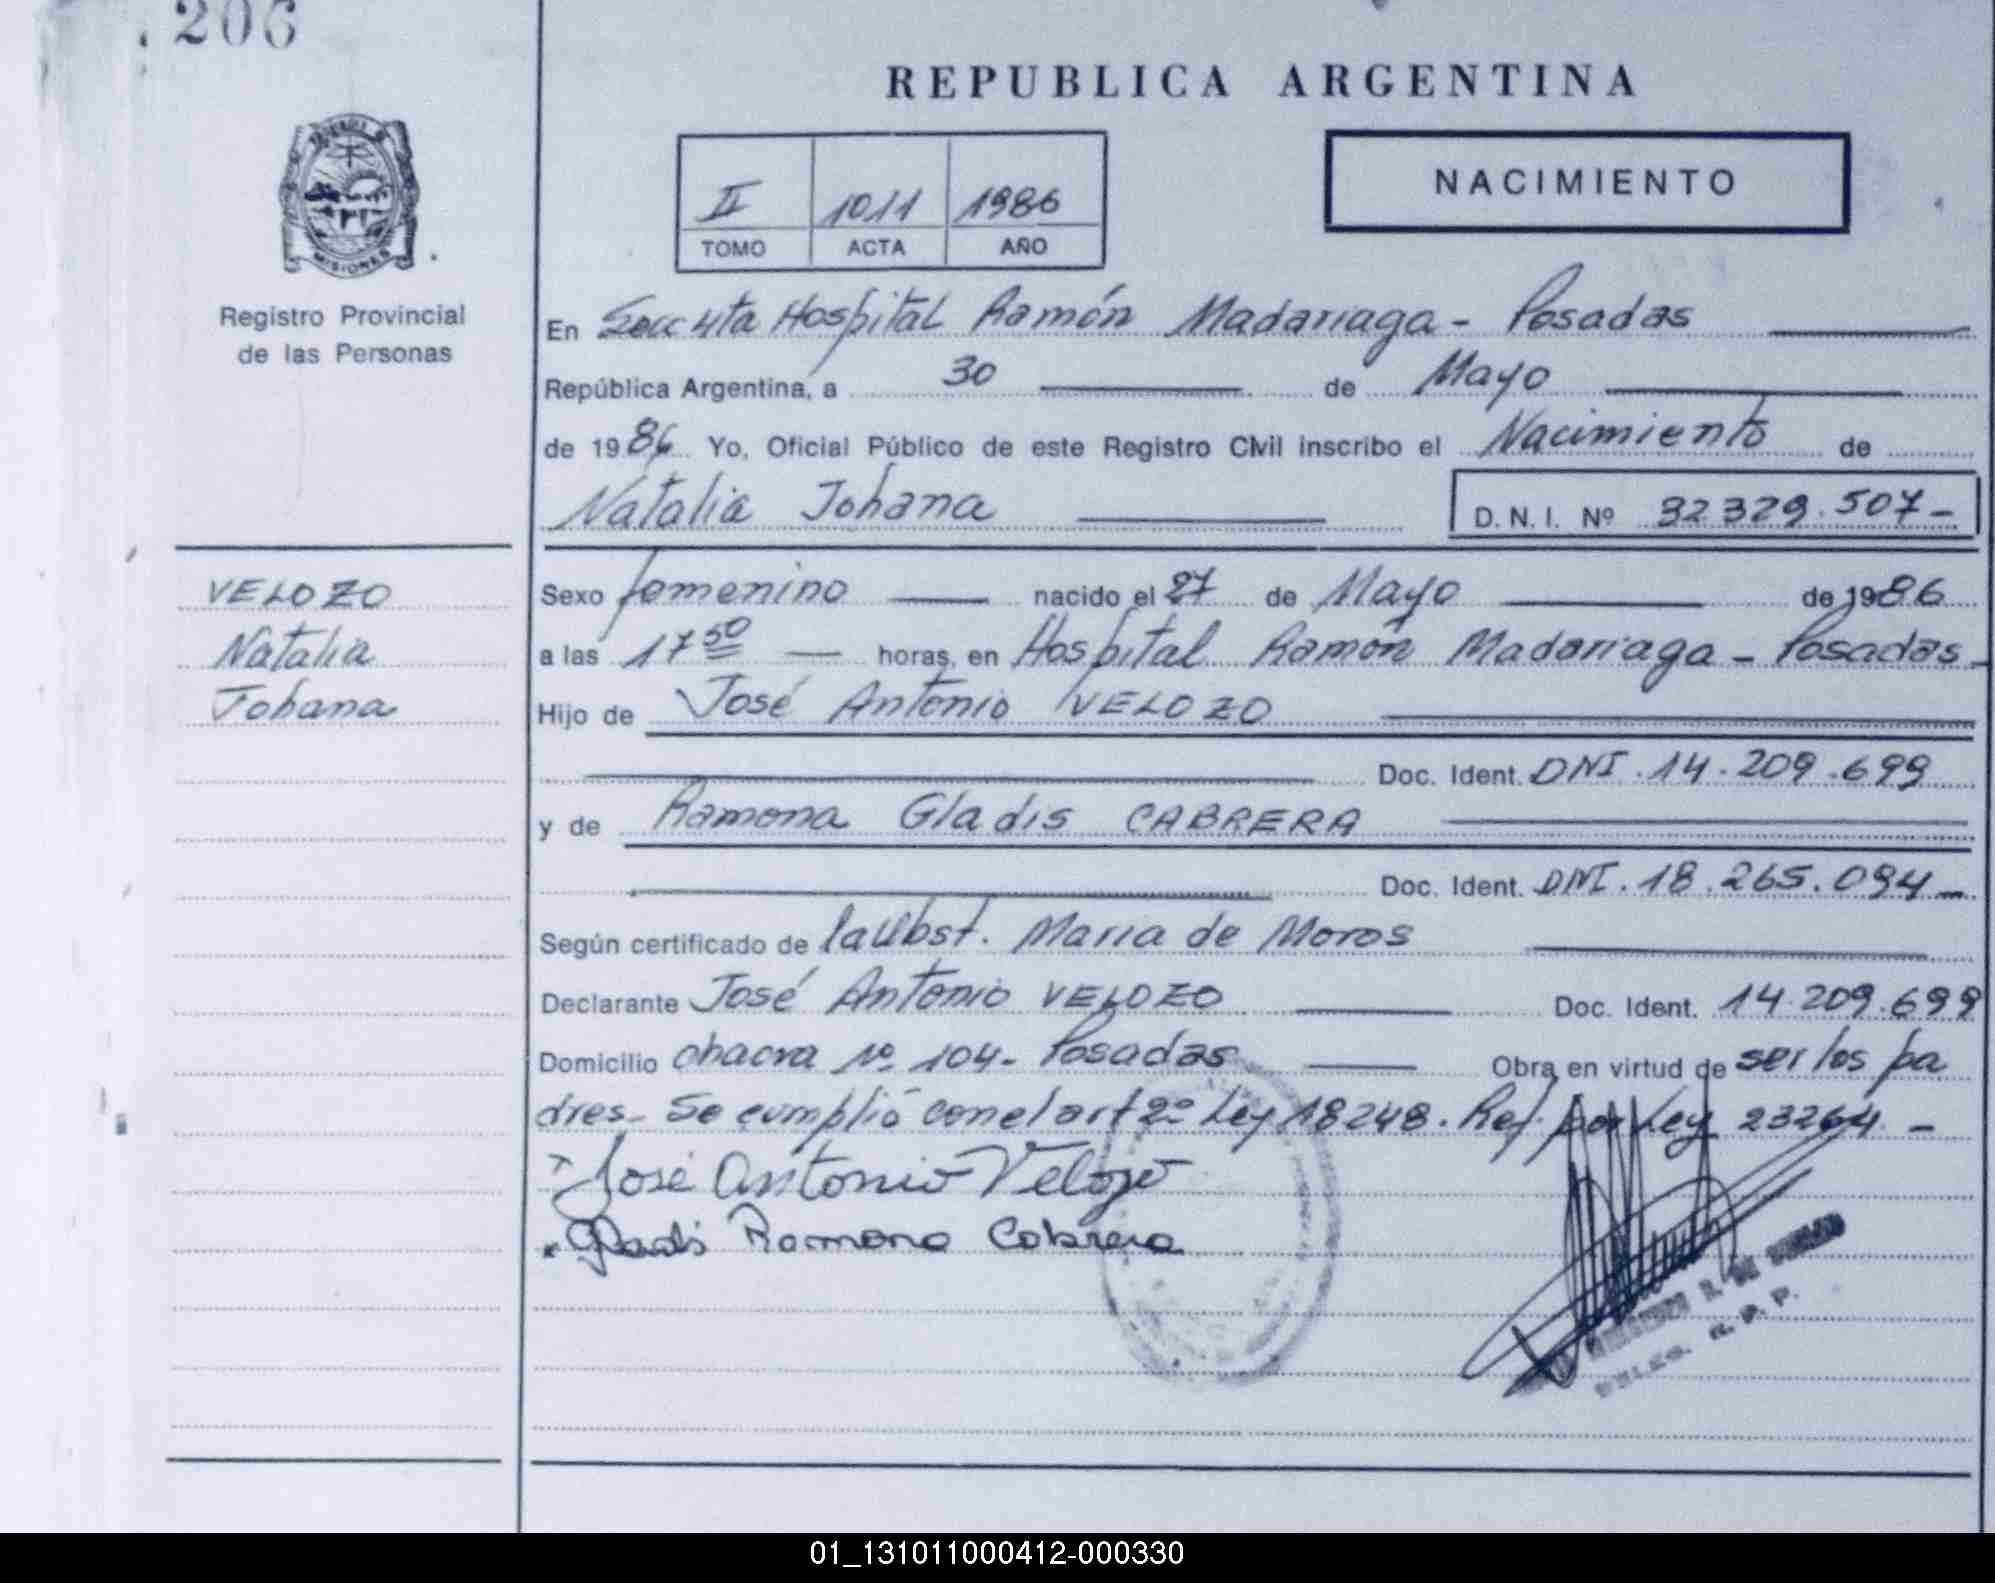 206
REPUBLICA ARGENTINA
NACIMIENTO
II 1011 1986
TOMO ACTA AÑO
MISIONES
Registro Provincial
de las Personas
En Secc 4ta Hospital Ramón Madariaga - Posadas
República Argentina, a 30 de Mayo
de 1986 Yo, Oficial Público de este Registro Civil inscribo el Nacimiento de
Natalia Johana
D. N. I. Nº 32329.507-
VELOZO
Natalia
Johana
Sexo femenino nacido el 27 de Mayo de 1986
a las 17 50 horas, en Hospital Ramón Madariaga - Posadas -
Hijo de José Antonio VELOZO
Doc. Ident. DNI. 14.209.699
y de Ramona Gladis CABRERA
Doc. Ident. DNI. 18.265.094-
Según certificado de la Obst. Maria de Moros
Declarante José Antonio VELOZO Doc. Ident. 14.209.699
Domicilio chacra nº 104- Posadas Obra en virtud de ser los pa
dres- Se cumplió con el art 2º Ley 18248. Ref. por Ley 23264 -
José Antonio Velozo
Gladis Ramona Cabrera
DELEG. R. P. P.
01_131011000412-000330